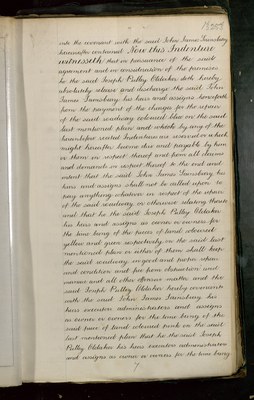 into the covenant with the said John James Tainsbury
hereinafter contained Now this Indenture
witnesseth that in pursuance of the said
agreement and in consideration of the premises
he the said Joseph Pulley Oldaker doth hereby
absolutely clears and discharge the said John
James Tainsbury his heirs and assigns henceforth
from the payment of the charges for the repair
of the said roadway coloured blue on the said
last mentioned plan and which by any of the
hereinbefore recited Indentures are reserved or which
might hereafter become due and payable by him
or them in respect thereof and from all claims
and demands in respect thereof to the end and
intent that the said John James Tainsbury his
heirs and assigns shall not be called upon to
pay anything whatever in respect of the repair
of the said roadway or otherwise relating thereto
and that he the said Joseph Pulley Oldaker
his heirs and assigns as owner or owners for
the time being of the pieces of land coloured
yellow and green respectively on the said last
mentioned plan or either of them shall keep
the said roadway in good and proper repair
and condition and free from obstruction
manure and all other offensive matter and the
said Joseph Pulley Oldaker hereby covenants
with the said John James Tainsbury his
heirs executors administrators and assigns
as owner or owners for the time being of the
said piece of land coloured pink on the said
last mentioned plan that he the said Joseph
Pulley Oldaker his heirs executors administrators
and assigns as owner or owners for the time being